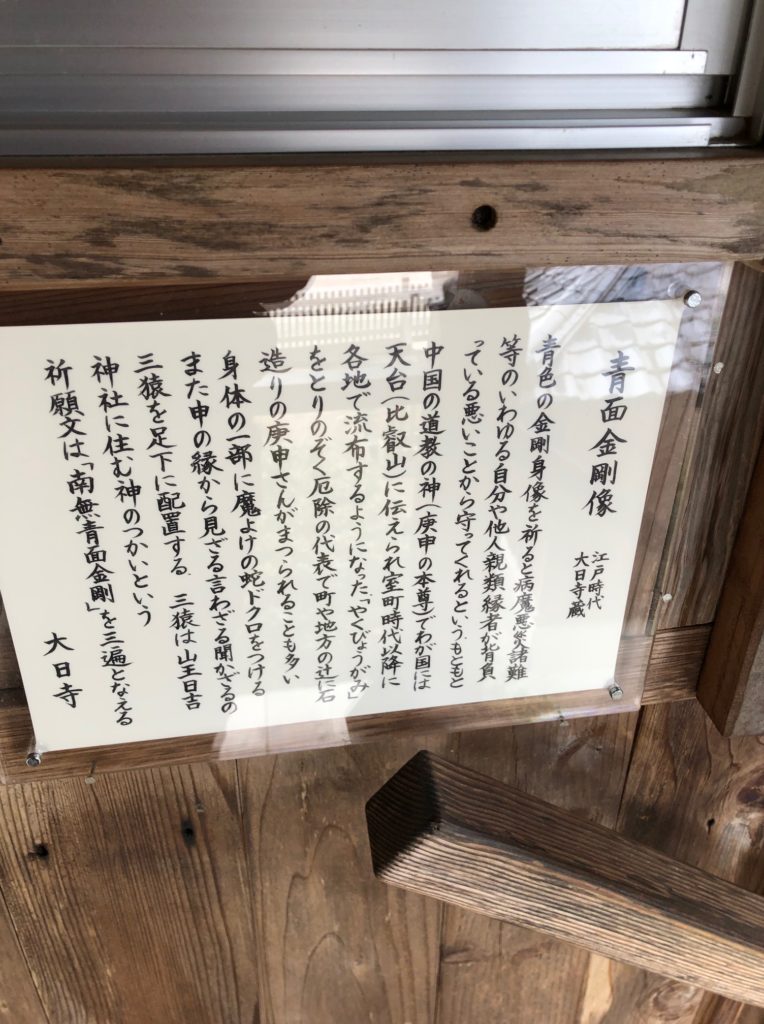 青面金剛像
江戸時代
大日寺蔵
青色の金剛身像を祈ると病魔悪災諸難
等のいわゆる自分や他人親類縁者が背負
っている悪いことから守ってくれるというもともと
中国の道教の神(庚申の本尊)でわが国には
天台(比叡山)に伝えられ室町時代以降に
各地で流布するようになった「やくびょうがみ」
をとりのぞく厄除の代表で町や地方の辻に石
造りの庚申さんがまつられることも多い
身体の一部に魔よけの蛇ドクロをつける
また申の縁から見ざる言わざる聞かざるの
三猿を足下に配置する.三猿は山王日吉
神社に住む神のつかいという
祈願文は「南無青面金剛」を三遍となえる
大日寺